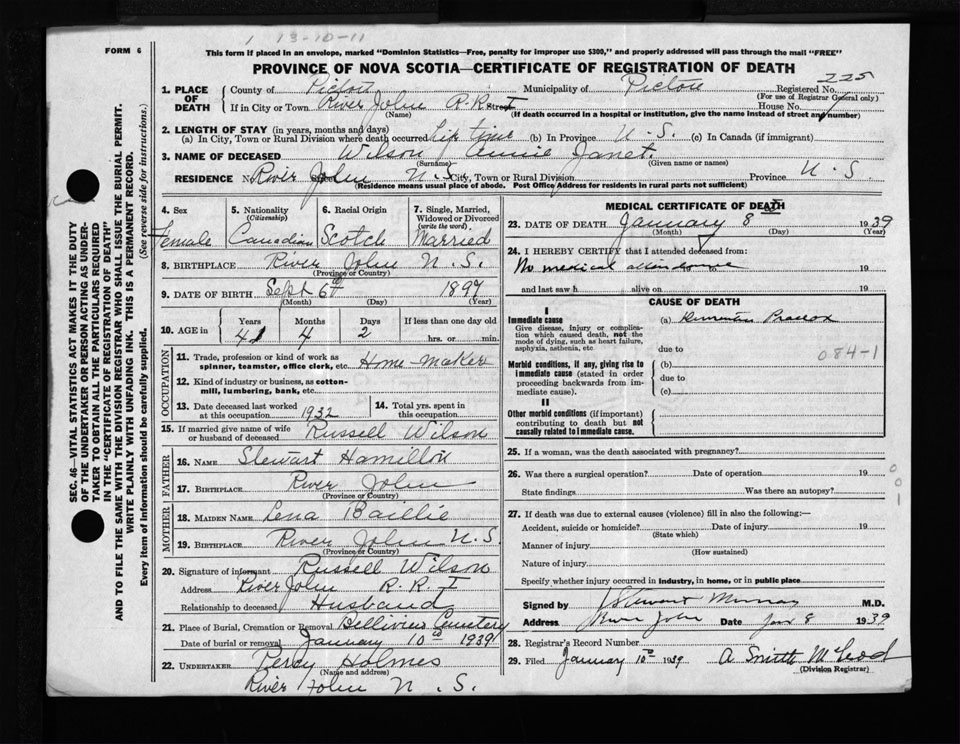 1 13-10-11
FORM 6
This form if placed in an envelope, marked "Dominion Statistics—Free, penalty for improper use $300," and properly addressed will pass through the mail "FREE"
PROVINCE OF NOVA SCOTIA—CERTIFICATE OF REGISTRATION OF DEATH
225
1. PLACE OF DEATH
County of Pictou Municipality of Pictou Registered No.
(Name) (For use of Registrar General only)
If in City or Town River John R.R. I Street House No.
(If death occurred in a hospital or institution, give the name instead of street and number)
2. LENGTH OF STAY (in years, months and days)
(a) In City, Town or Rural Division where death occurred Life time (b) In Province N.S. (c) In Canada (if immigrant)
3. NAME OF DECEASED Wilson Annie Janet.
(Surname) (Given name or names)
RESIDENCE No. River John N.S. Street City, Town or Rural Division Province N.S
(Residence means usual place of abode. Post Office Address for residents in rural parts not sufficient)
4. Sex
Female
5. Nationality (Citizenship)
Canadian
6. Racial Origin
Scotch
7. Single, Married, Widowed or Divorced (write the word)
Married
8. BIRTHPLACE River John N.S.
(Province or Country)
9. DATE OF BIRTH Sept 6th 1897
(Month) (Day) (Year)
10. AGE in Years Months Days If less than one day old
41 4 2 hrs. or min.
OCCUPATION
11. Trade, profession or kind of work as spinner, teamster, office clerk, etc. Home-Maker
12. Kind of industry or business, as cotton-mill, lumbering, bank, etc.
13. Date deceased last worked at this occupation 1932
14. Total yrs. spent in this occupation
15. If married give name of wife or husband of deceased Russell Wilson
FATHER
16. NAME Stewart Hamilton
17. BIRTHPLACE River John
(Province or Country)
MOTHER
18. MAIDEN NAME Lena Baillie
19. BIRTHPLACE River John N.S.
(Province or Country)
20. Signature of informant Russell Wilson
Address River John R.R. I
Relationship to deceased Husband
21. Place of Burial, Cremation or Removal Cemetery
Date of burial or removal January 10th 1939
22. UNDERTAKER Percy Holmes
(Name and address)
River John N.S.
MEDICAL CERTIFICATE OF DEATH
23. DATE OF DEATH January 8 1939
(Month) (Day) (Year)
24. I HEREBY CERTIFY that I attended deceased from:
No medical attendance 19
and last saw h alive on 19
CAUSE OF DEATH
I
Immediate cause (a) Dementia Praecox
Give disease, injury or complication which caused death, not the mode of dying, such as heart failure, asphyxia, asthenia, etc. due to
084-1
Morbid conditions, if any, giving rise to immediate cause (stated in order proceeding backwards from immediate cause). (b)
due to
(c)
II
Other morbid conditions (if important) contributing to death but not causally related to immediate cause.
25. If a woman, was the death associated with pregnancy?
26. Was there a surgical operation? Date of operation 19
State findings Was there an autopsy?
0
0
1
27. If death was due to external causes (violence) fill in also the following:—
Accident, suicide or homicide? Date of injury 19
(State which)
Manner of injury
(How sustained)
Nature of injury
Specify whether injury occurred in industry, in home, or in public place
Signed by Stewart Murray M.D.
Address River John Date Jan 8 1939
28. Registrar's Record Number
29. Filed January 10th 1939 A Smith McLeod
(Division Registrar)
SEC. 46—VITAL STATISTICS ACT MAKES IT THE DUTY
OF THE UNDERTAKER OR PERSON ACTING AS UNDER-
TAKER TO OBTAIN ALL THE PARTICULARS REQUIRED
IN THE "CERTIFICATE OF REGISTRATION OF DEATH"
AND TO FILE THE SAME WITH THE DIVISION REGISTRAR WHO SHALL ISSUE THE BURIAL PERMIT.
WRITE PLAINLY WITH UNFADING INK. THIS IS A PERMANENT RECORD.
Every item of information should be carefully supplied. (See reverse side for instructions.)